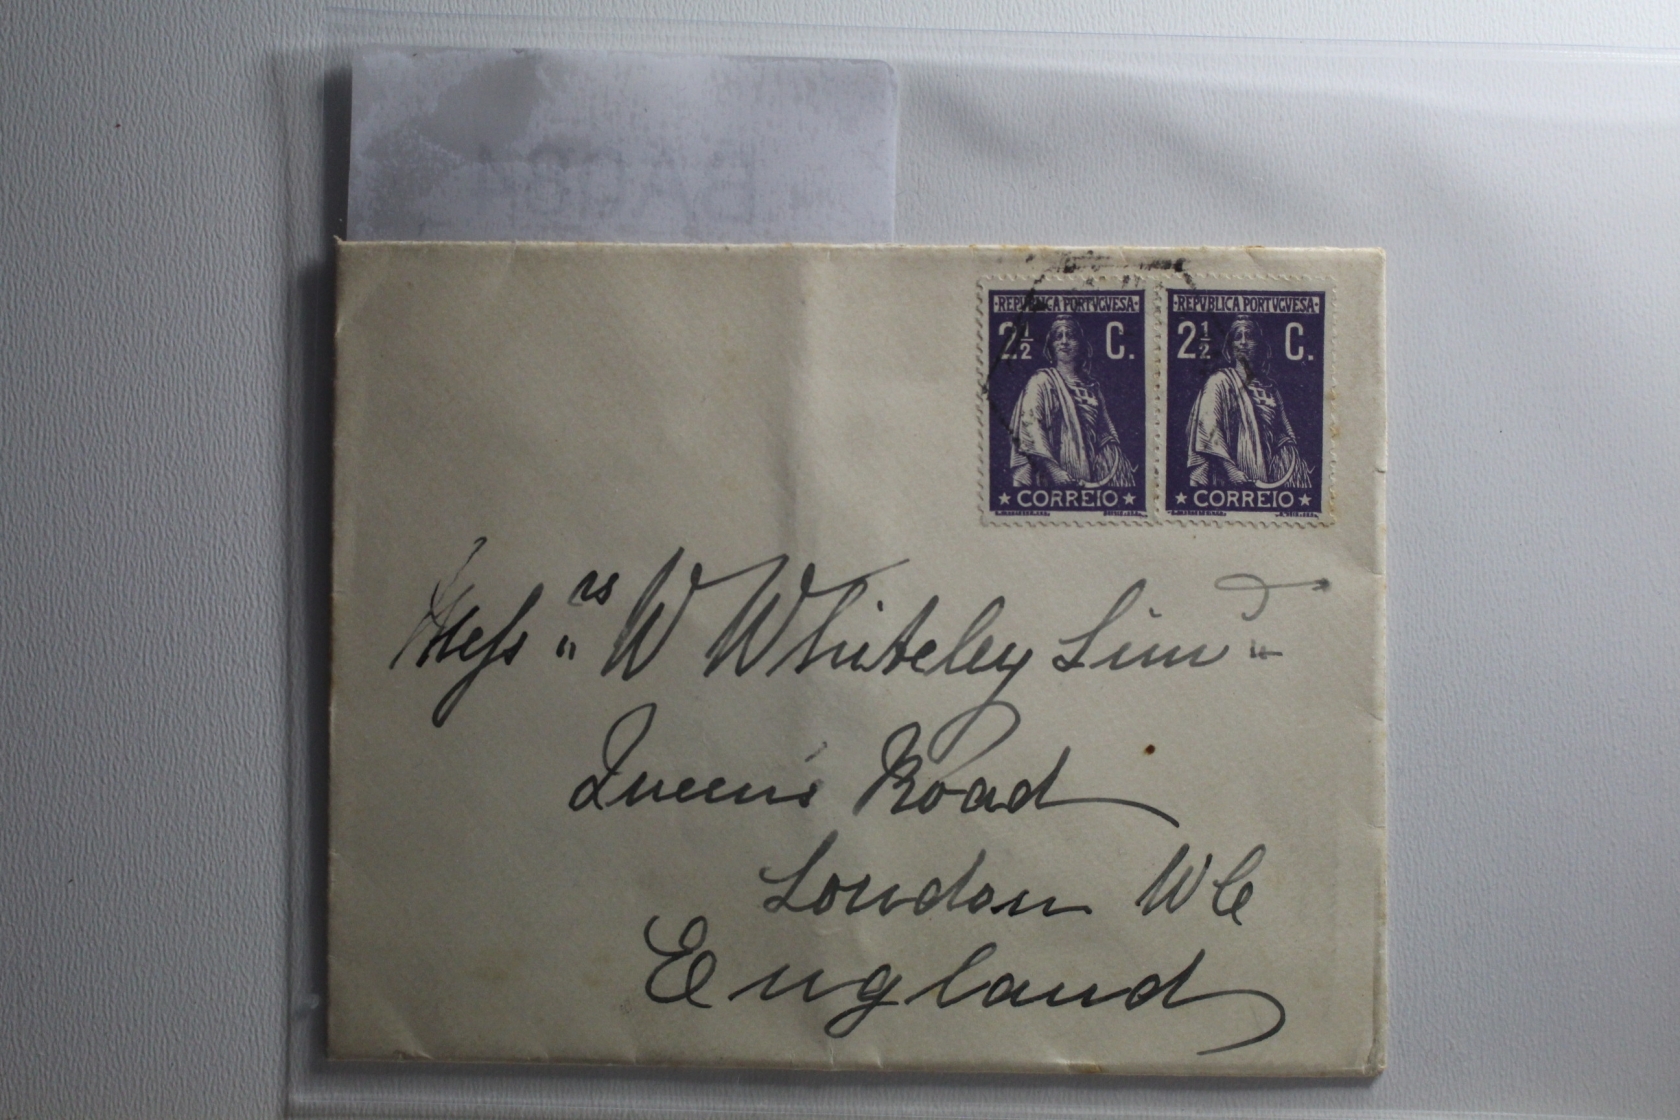 REPVBLICA PORTVGVESA
2½ C.
CORREIO
REPVBLICA PORTVGVESA
2½ C.
CORREIO
Messrs W Whiteley Limd
Queen's Road
London WC
England